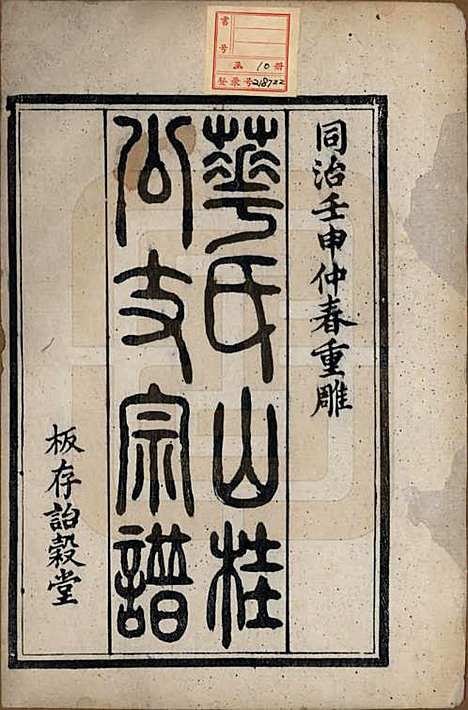 書
号
函 10 册
登录号 218722
同治壬申仲春重雕
華氏山桂
公支宗譜
板存詒穀堂